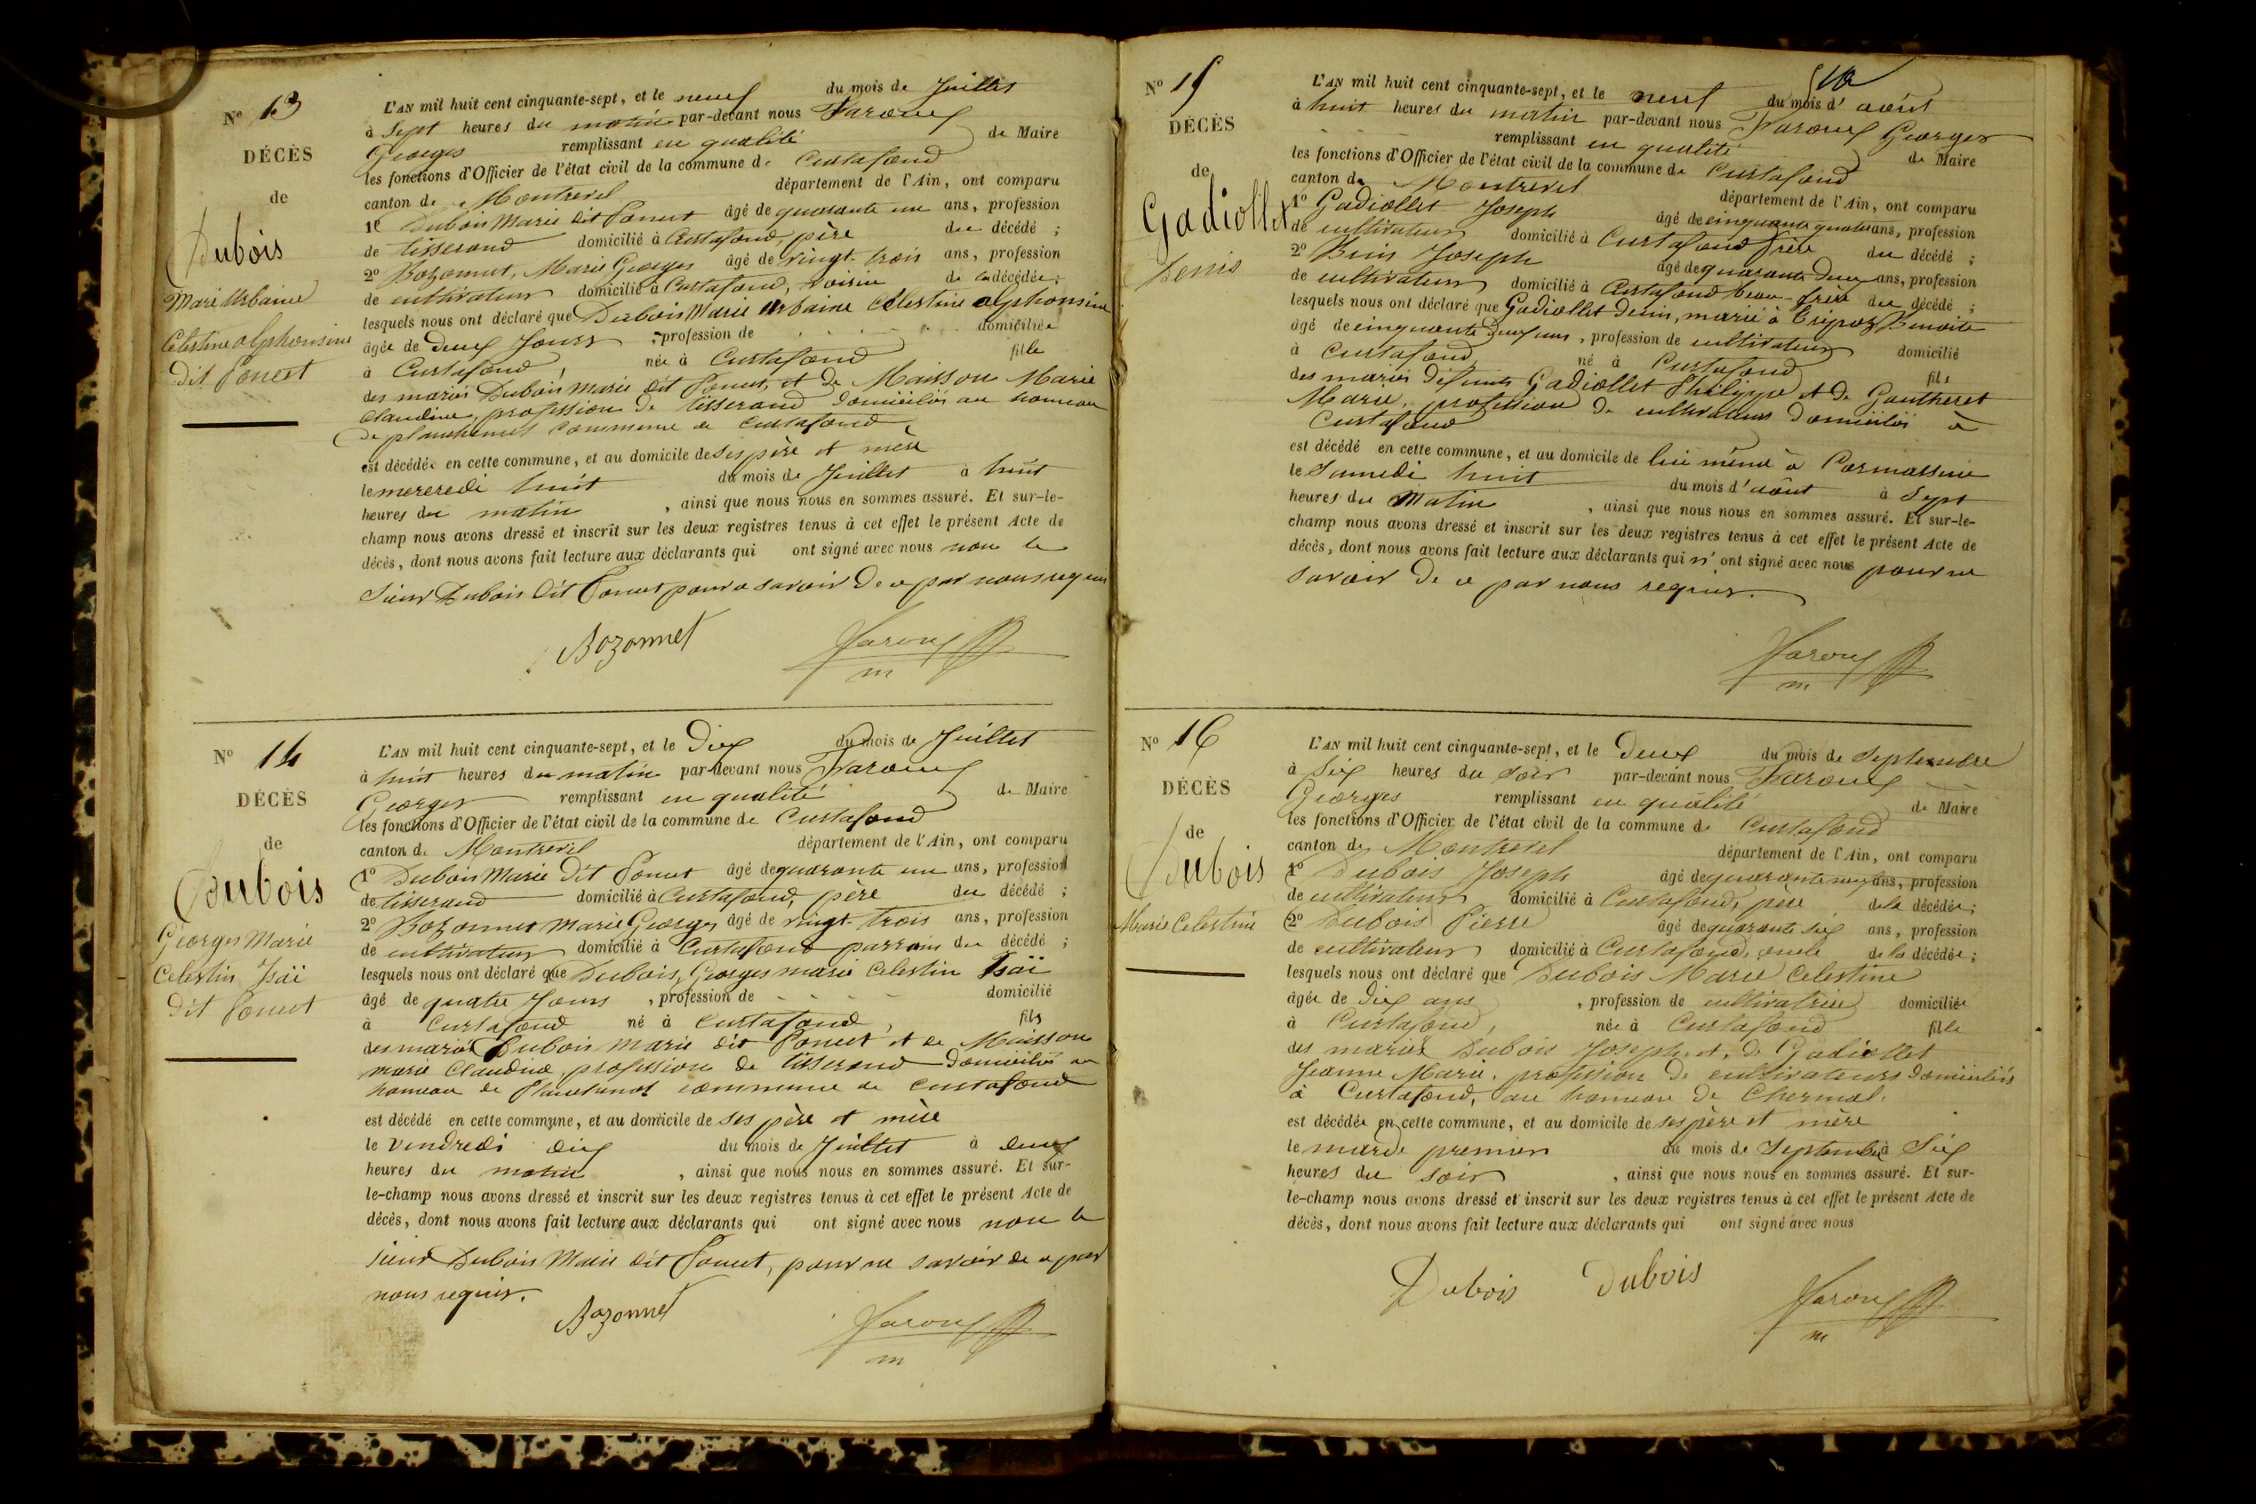 Nº 13
DÉCÈS
de
Dubois
Marie Urbaine
Celestine alphonsine
dit Ponect
L'AN mil huit cent cinquante-sept, et le neuf du mois de Juillet
à Sept heures du matin par-devant nous
Georges remplissant en qualité de Maire
les fonctions d'Officier de l'état civil de la commune de Curtafond
canton de Montrevel département de l'Ain, ont comparu
1º Dubois Marie dit Ponect âgé de quarante un ans, profession
de tisserand domicilié à Curtafond, père du décédé ;
2º Bozonnet, Marie Georges âgé de vingt-trois ans, profession
de cultivateur domicilié à Curtafond, voisin de la décédée ;
lesquels nous ont déclaré que Dubois Marie Urbaine Celestine alphonsine
âgée de deux Jours , profession de domiciliée
à Curtafond, née à Curtafond fille
des mariés Dubois Marie dit Ponect, et de Maisson Marie
Claudine, profession de tisserand domiciliés au hameau
de commune de Curtafond
est décédée en cette commune, et au domicile de ses père et mère
le mercredi huit du mois de Juillet à huit
heures du matin , ainsi que nous nous en sommes assuré. Et sur-le-
champ nous avons dressé et inscrit sur les deux registres tenus à cet effet le présent Acte de
décès, dont nous avons fait lecture aux déclarants qui ont signé avec nous non le
Sieur Dubois dit Ponect pour ne savoir de ce par nous requis
Bozonnet
Nº 14
DÉCÈS
de
Dubois
Georges Marie
Celestin Isaï
dit Ponect
L'AN mil huit cent cinquante-sept, et le Dix du mois de Juillet
à huit heures du matin par-devant nous
Georges remplissant en qualité de Maire
les fonctions d'Officier de l'état civil de la commune de Curtafond
canton de Montrevel département de l'Ain, ont comparu
1º Dubois Marie dit Ponect âgé de quarante un ans, profession
de tisserand domicilié à Curtafond, père du décédé ;
2º Bozonnet Marie Georges âgé de vingt-trois ans, profession
de cultivateur domicilié à Curtafond parrain du décédé ;
lesquels nous ont déclaré que Dubois, Georges marie Celestin Isaï
âgé de quatre Jours , profession de domicilié
à Curtafond né à Curtafond, fils
des mariés Dubois Marie dit Ponect et de Maisson
marie Claudine profession de tisserand domiciliés au
hameau de commune de Curtafond
est décédé en cette commune, et au domicile de ses père et mère
le vendredi dix du mois de Juillet à deux
heures du matin , ainsi que nous nous en sommes assuré. Et sur-
le-champ nous avons dressé et inscrit sur les deux registres tenus à cet effet le présent Acte de
décès, dont nous avons fait lecture aux déclarants qui ont signé avec nous non le
sieur Dubois Marie dit Ponect, pour ne savoir de ce par
nous requis.
Bozonnet
Nº 15
DÉCÈS
de
Gadiollet
Denis
L'AN mil huit cent cinquante-sept, et le neuf du mois d'août
à huit heures du matin par-devant nous Georges
remplissant en qualité de Maire
les fonctions d'Officier de l'état civil de la commune de Curtafond
canton de Montrevel département de l'Ain, ont comparu
1º Gadiollet Joseph âgé de cinquante quatre ans, profession
de cultivateur domicilié à Curtafond frère du décédé ;
2º Joseph âgé de quarante deux ans, profession
de cultivateur domicilié à Curtafond beau-frère du décédé ;
lesquels nous ont déclaré que Gadiollet Denis, marié à Benoite
âgé de cinquante deux ans, profession de cultivateur domicilié
à Curtafond, né à Curtafond fils
des mariés défunts Gadiollet Philippe et de Gontheret
Marie, profession de cultivateurs domiciliés à
Curtafond
est décédé en cette commune, et au domicile de lui même à
le Samedi huit du mois d'août à Sept
heures du Matin , ainsi que nous nous en sommes assuré. Et sur-le-
champ nous avons dressé et inscrit sur les deux registres tenus à cet effet le présent Acte de
décès, dont nous avons fait lecture aux déclarants qui n'ont signé avec nous pour ne
savoir de ce par nous requis.
Nº 16
DÉCÈS
de
Dubois
Marie Celestine
L'AN mil huit cent cinquante-sept, et le Deux du mois de Septembre
à Six heures du soir par-devant nous
Georges remplissant en qualité de Maire
les fonctions d'Officier de l'état civil de la commune de Curtafond
canton de Montrevel département de l'Ain, ont comparu
1º Dubois Joseph âgé de quarante neuf ans, profession
de cultivateur domicilié à Curtafond, père de la décédée ;
2º Dubois Pierre âgé de quarante six ans, profession
de cultivateur domicilié à Curtafond, oncle de la décédée ;
lesquels nous ont déclaré que Dubois Marie Celestine
âgée de Dix ans , profession de cultivatrice domiciliée
à Curtafond, née à Curtafond fille
des mariés Dubois Joseph et de Gadiollet
Jeanne Marie, profession de cultivateurs domiciliés
à Curtafond, au hameau de Chermal.
est décédée en cette commune, et au domicile de ses père et mère
le mardi premier du mois de Septembre à Six
heures du soir , ainsi que nous nous en sommes assuré. Et sur-
le-champ nous avons dressé et inscrit sur les deux registres tenus à cet effet le présent Acte de
décès, dont nous avons fait lecture aux déclarants qui ont signé avec nous
Dubois Dubois